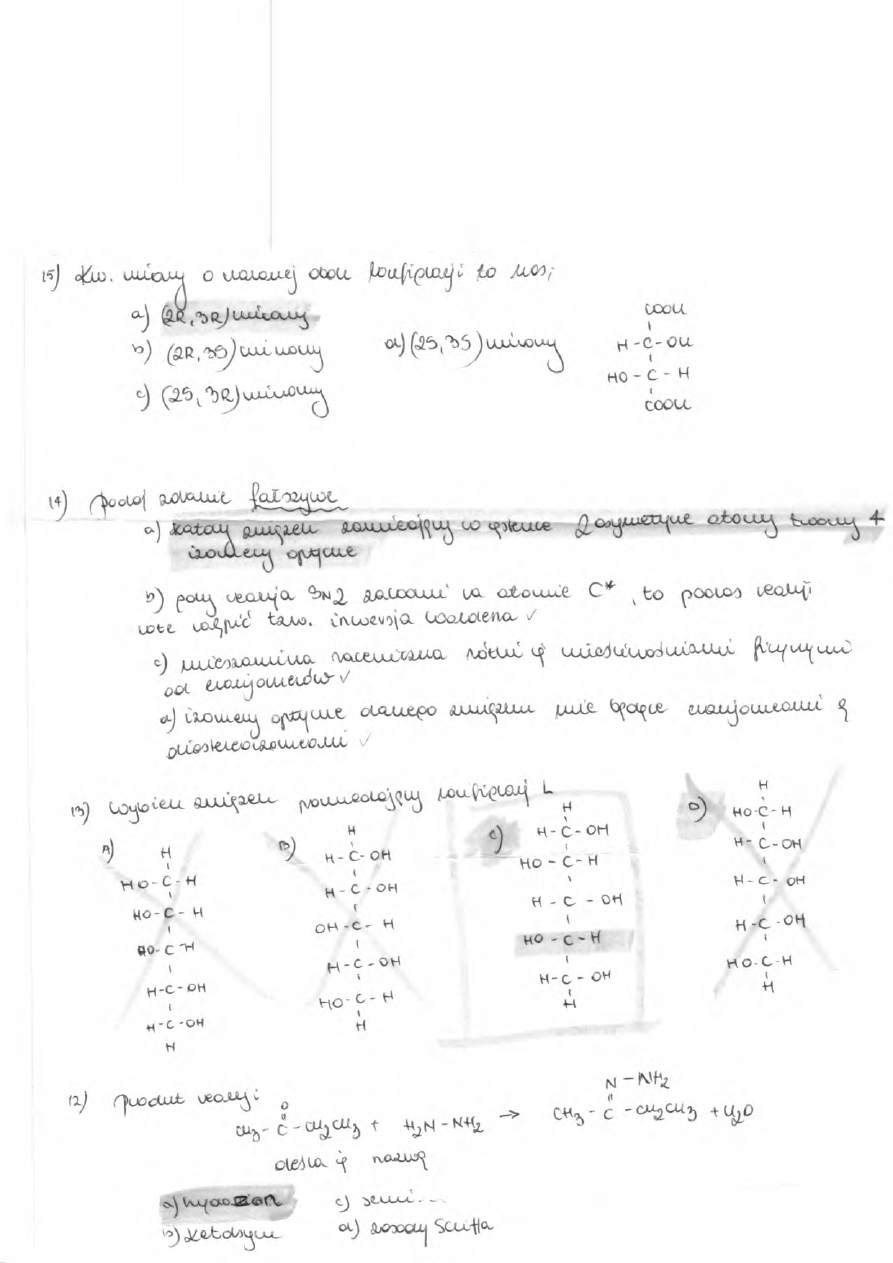 15) Kw. winowy o narysowanej obok konfiguracji to
a) (2R, 3R) winowy
b) (2R, 3S) winowy
d) (2S, 3S) winowy
c) (2S, 3R) winowy
COOH
H - C - OH
HO - C - H
COOH
14) podaj zdanie fałszywe
a) każdy związek zawierający w cząsteczce 2 asymetryczne atomy tworzy 4
izomery optyczne
b) gdy reakcja SN2 zachodzi na atomie C*, to podczas reakcji
może nastąpić tzw. inwersja Waldena ✓
c) mieszanina racemiczna różni się właściwościami fizycznymi
od enancjomerów ✓
d) izomery optyczne danego związku nie będące enancjomerami są
diastereoizomerami ✓
13) wybierz związek posiadający konfigurację L
A)
H
HO - C - H
HO - C - H
HO - C - H
H - C - OH
H - C - OH
H
B)
H
H - C - OH
H - C - OH
OH - C - H
H - C - OH
HO - C - H
H
C)
H
H - C - OH
HO - C - H
H - C - OH
HO - C - H
H - C - OH
H
D)
H
HO - C - H
H - C - OH
H - C - OH
H - C - OH
HO - C - H
H
12) produkt reakcji
O
CH3 - C - CH2CH3 + H2N - NH2 →
N - NH2
CH3 - C - CH2CH3 + H2O
określa się nazwą
a) hydrazon
c) semi...
b) ketoksym
d) zasady Schiffa